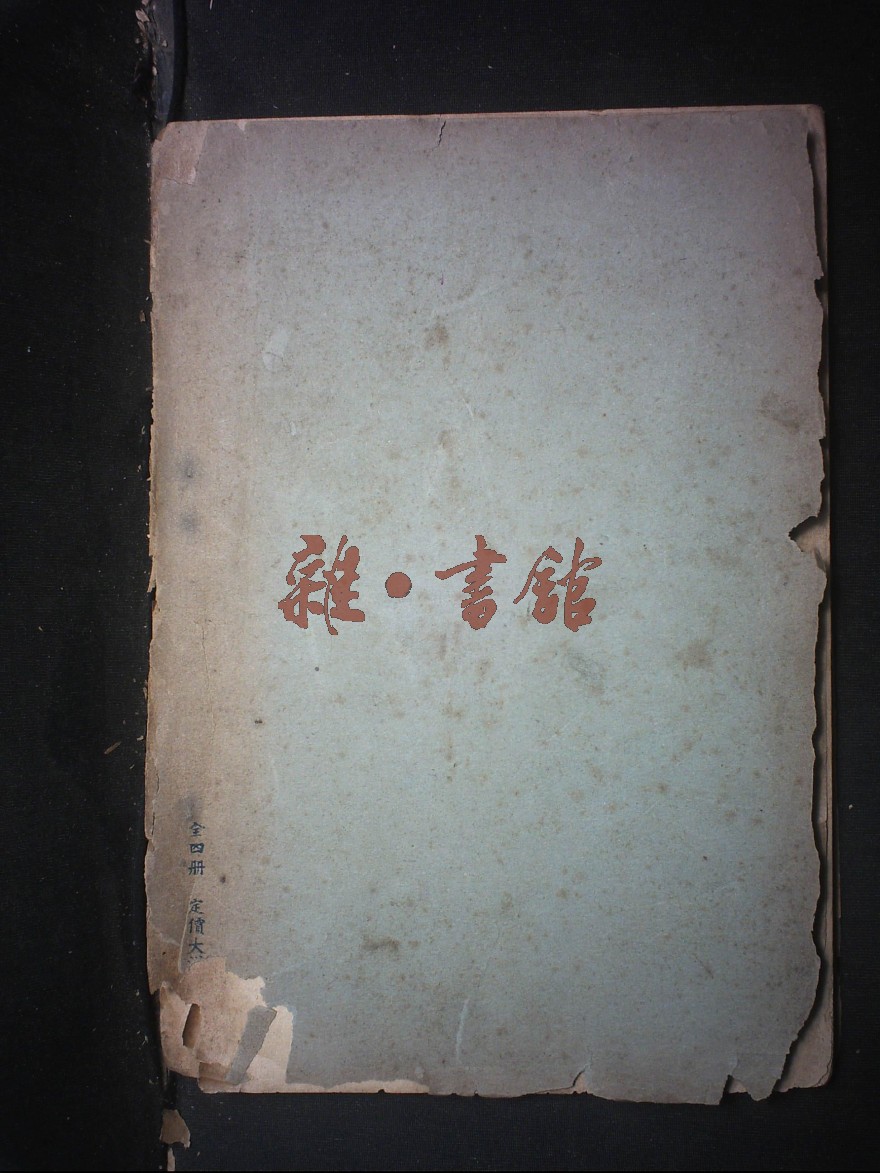 雜·書館
全四册 定價大